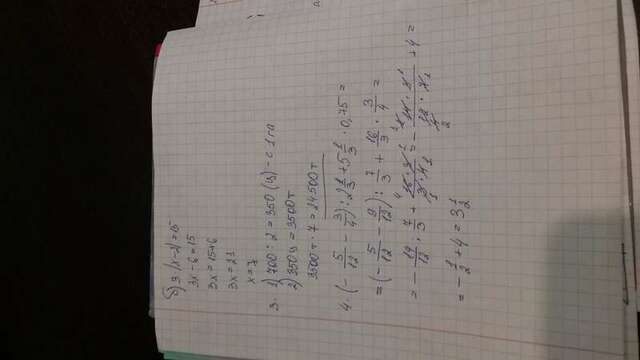 б) 3·(x-2)=15
3x-6=15
3x=15+6
3x=21
x=7
3. 1) 700:2=350 (ц) - с 1 га
2) 350ц = 3500т
3500т·7=24500т
4. (-5/12 - 3/4) : 2 1/3 + 5 1/3 · 0,75 =
= (-5/12 - 9/12) : 7/3 + 16/3 · 3/4 =
= -14/12 : 7/3 + 16·3/3·4 = -14·3/12·7 + 4 =
= -1/2 + 4 = 3 1/2